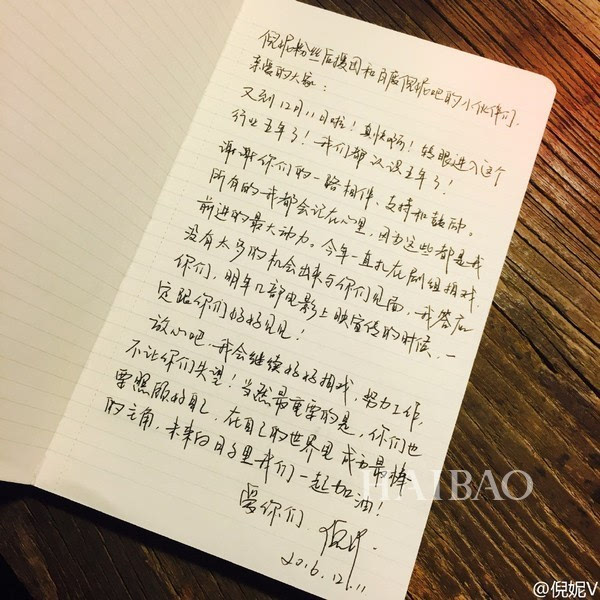 倪妮粉丝后援团和百度倪妮吧的小伙伴们,
亲爱的大家:
又到12月11日啦!真快啊!转眼进入这个
行业五年了!我们都认识五年了!
谢谢你们的一路相伴、支持和鼓励。
所有的一我都会记在心里,因为这些都是我
前进的最大动力。今年一直扎在剧组拍戏,
没有太多的机会出来与你们见面,我答应
你们,明年几部电影上映宣传的时候,一
定跟你们好好见见!
放心吧,我会继续好好拍戏,努力工作,
不让你们失望!当然最重要的是,你们也
要照顾好自己,在自己的世界里成为最棒
的主角,未来的日子里我们一起加油!
爱你们 倪妮.
2016.12.11
HAIBAO
@倪妮V